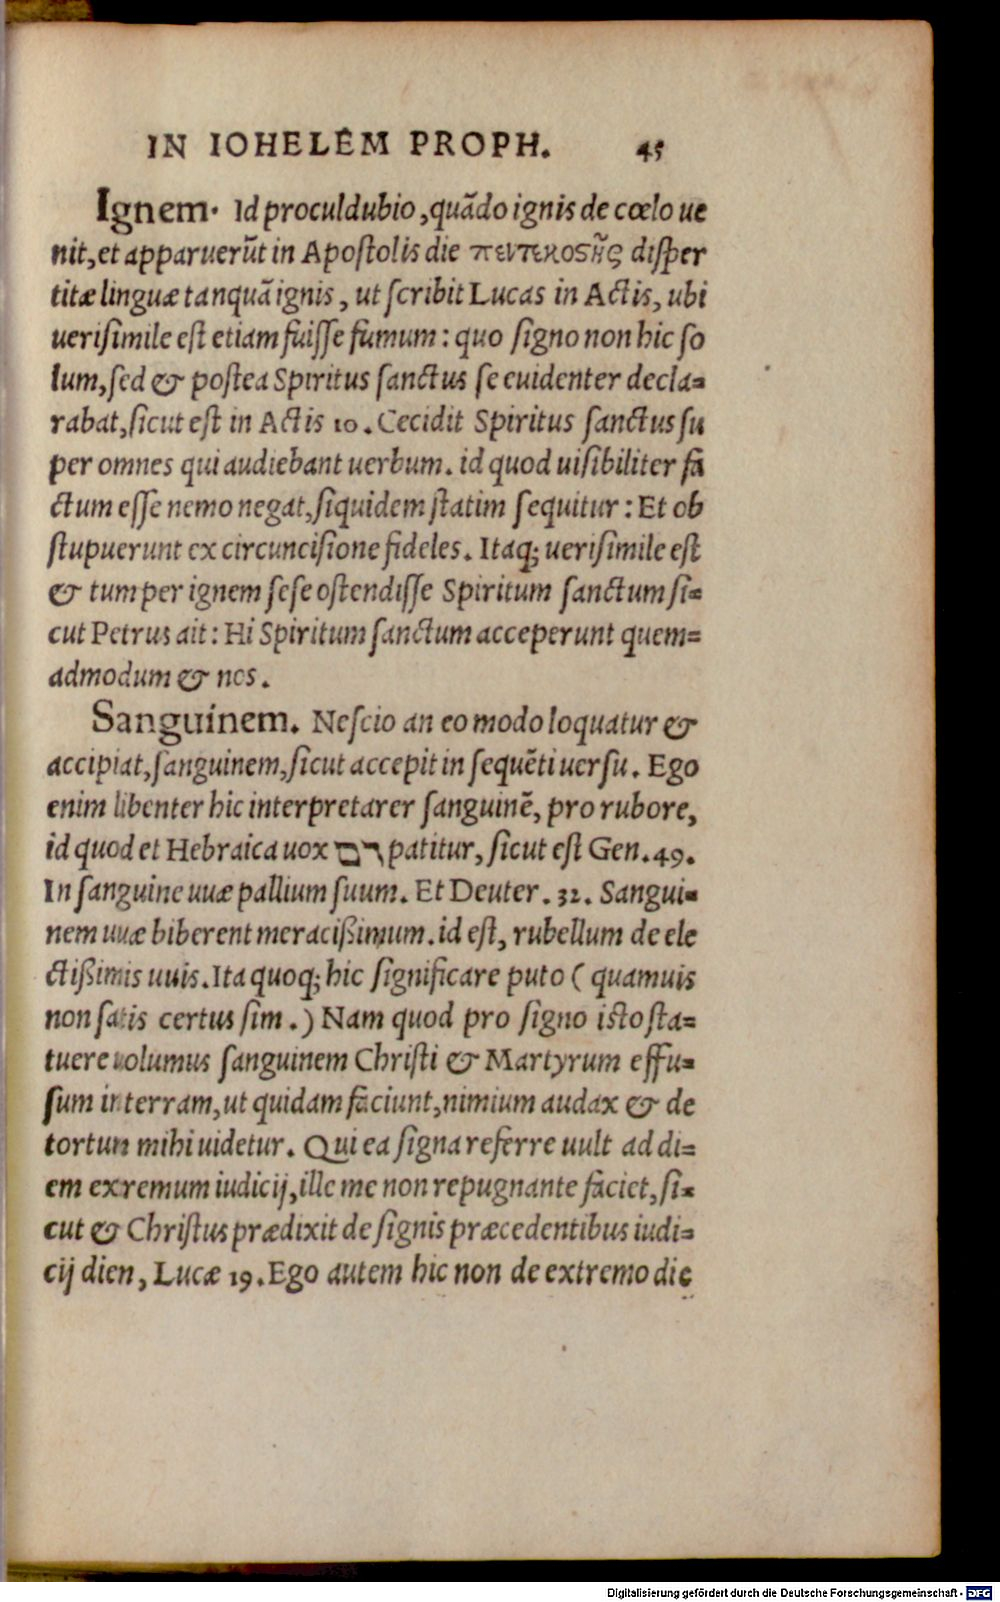 IN IOHELEM PROPH. 45
Ignem. Id proculdubio, quādo ignis de cœlo ue
nit, et apparuerūt in Apoſtolis die πεντεκοςῆς diſper
titæ linguæ tanquā ignis, ut ſcribit Lucas in Actis, ubi
veriſimile eſt etiam fuiſſe fumum: quo ſigno non hic ſo
lum, ſed & poſtea Spiritus ſanctus ſe euidenter decla=
rabat, ſicut eſt in Actis 10. Cecidit Spiritus ſanctus ſu
per omnes qui audiebant uerbum. id quod uiſibiliter fa
ctum eſſe nemo negat, ſiquidem ſtatim ſequitur: Et ob
ſtupuerunt ex circunciſione fideles. Itaq; ueriſimile eſt
& tum per ignem ſeſe oſtendiſſe Spiritum ſanctum ſi=
cut Petrus ait: Hi Spiritum ſanctum acceperunt quem=
admodum & nos.
Sanguinem. Neſcio an eo modo loquatur &
accipiat, ſanguinem, ſicut accepit in ſequēti uerſu. Ego
enim libenter hic interpretarer ſanguinē, pro rubore,
id quod et Hebraica uox דם patitur, ſicut eſt Gen. 49.
In ſanguine uuæ pallium ſuum. Et Deuter. 32. Sangui=
nem uuæ biberent meracißimum. id eſt, rubellum de ele
ctißimis uuis. Ita quoq; hic ſignificare puto ( quamuis
non ſatis certus ſim.) Nam quod pro ſigno iſto ſta=
tuere volumus ſanguinem Chriſti & Martyrum effu=
ſum in terram, ut quidam faciunt, nimium audax & de
tortum mihi uidetur. Qui ea ſigna referre uult ad di=
em exremum iudicij, ille me non repugnante faciet, ſi=
cut & Chriſtus prædixit de ſignis præcedentibus iudi=
cij dien, Lucæ 19. Ego autem hic non de extremo die
Digitalisierung gefördert durch die Deutsche Forschungsgemeinschaft - DFG